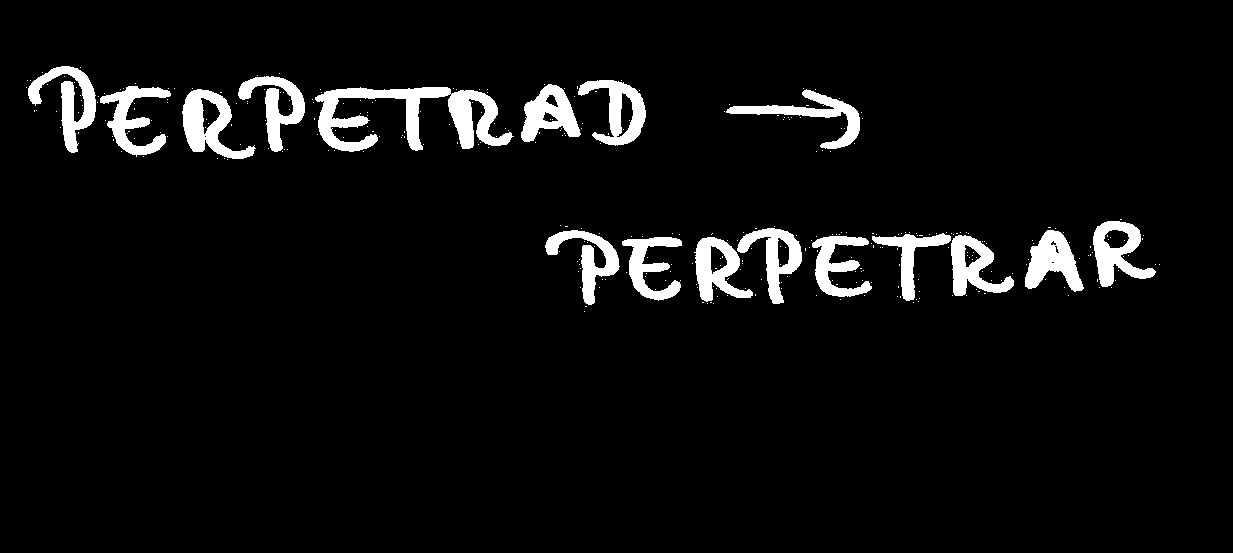 PERPETRAD →
PERPETRAR